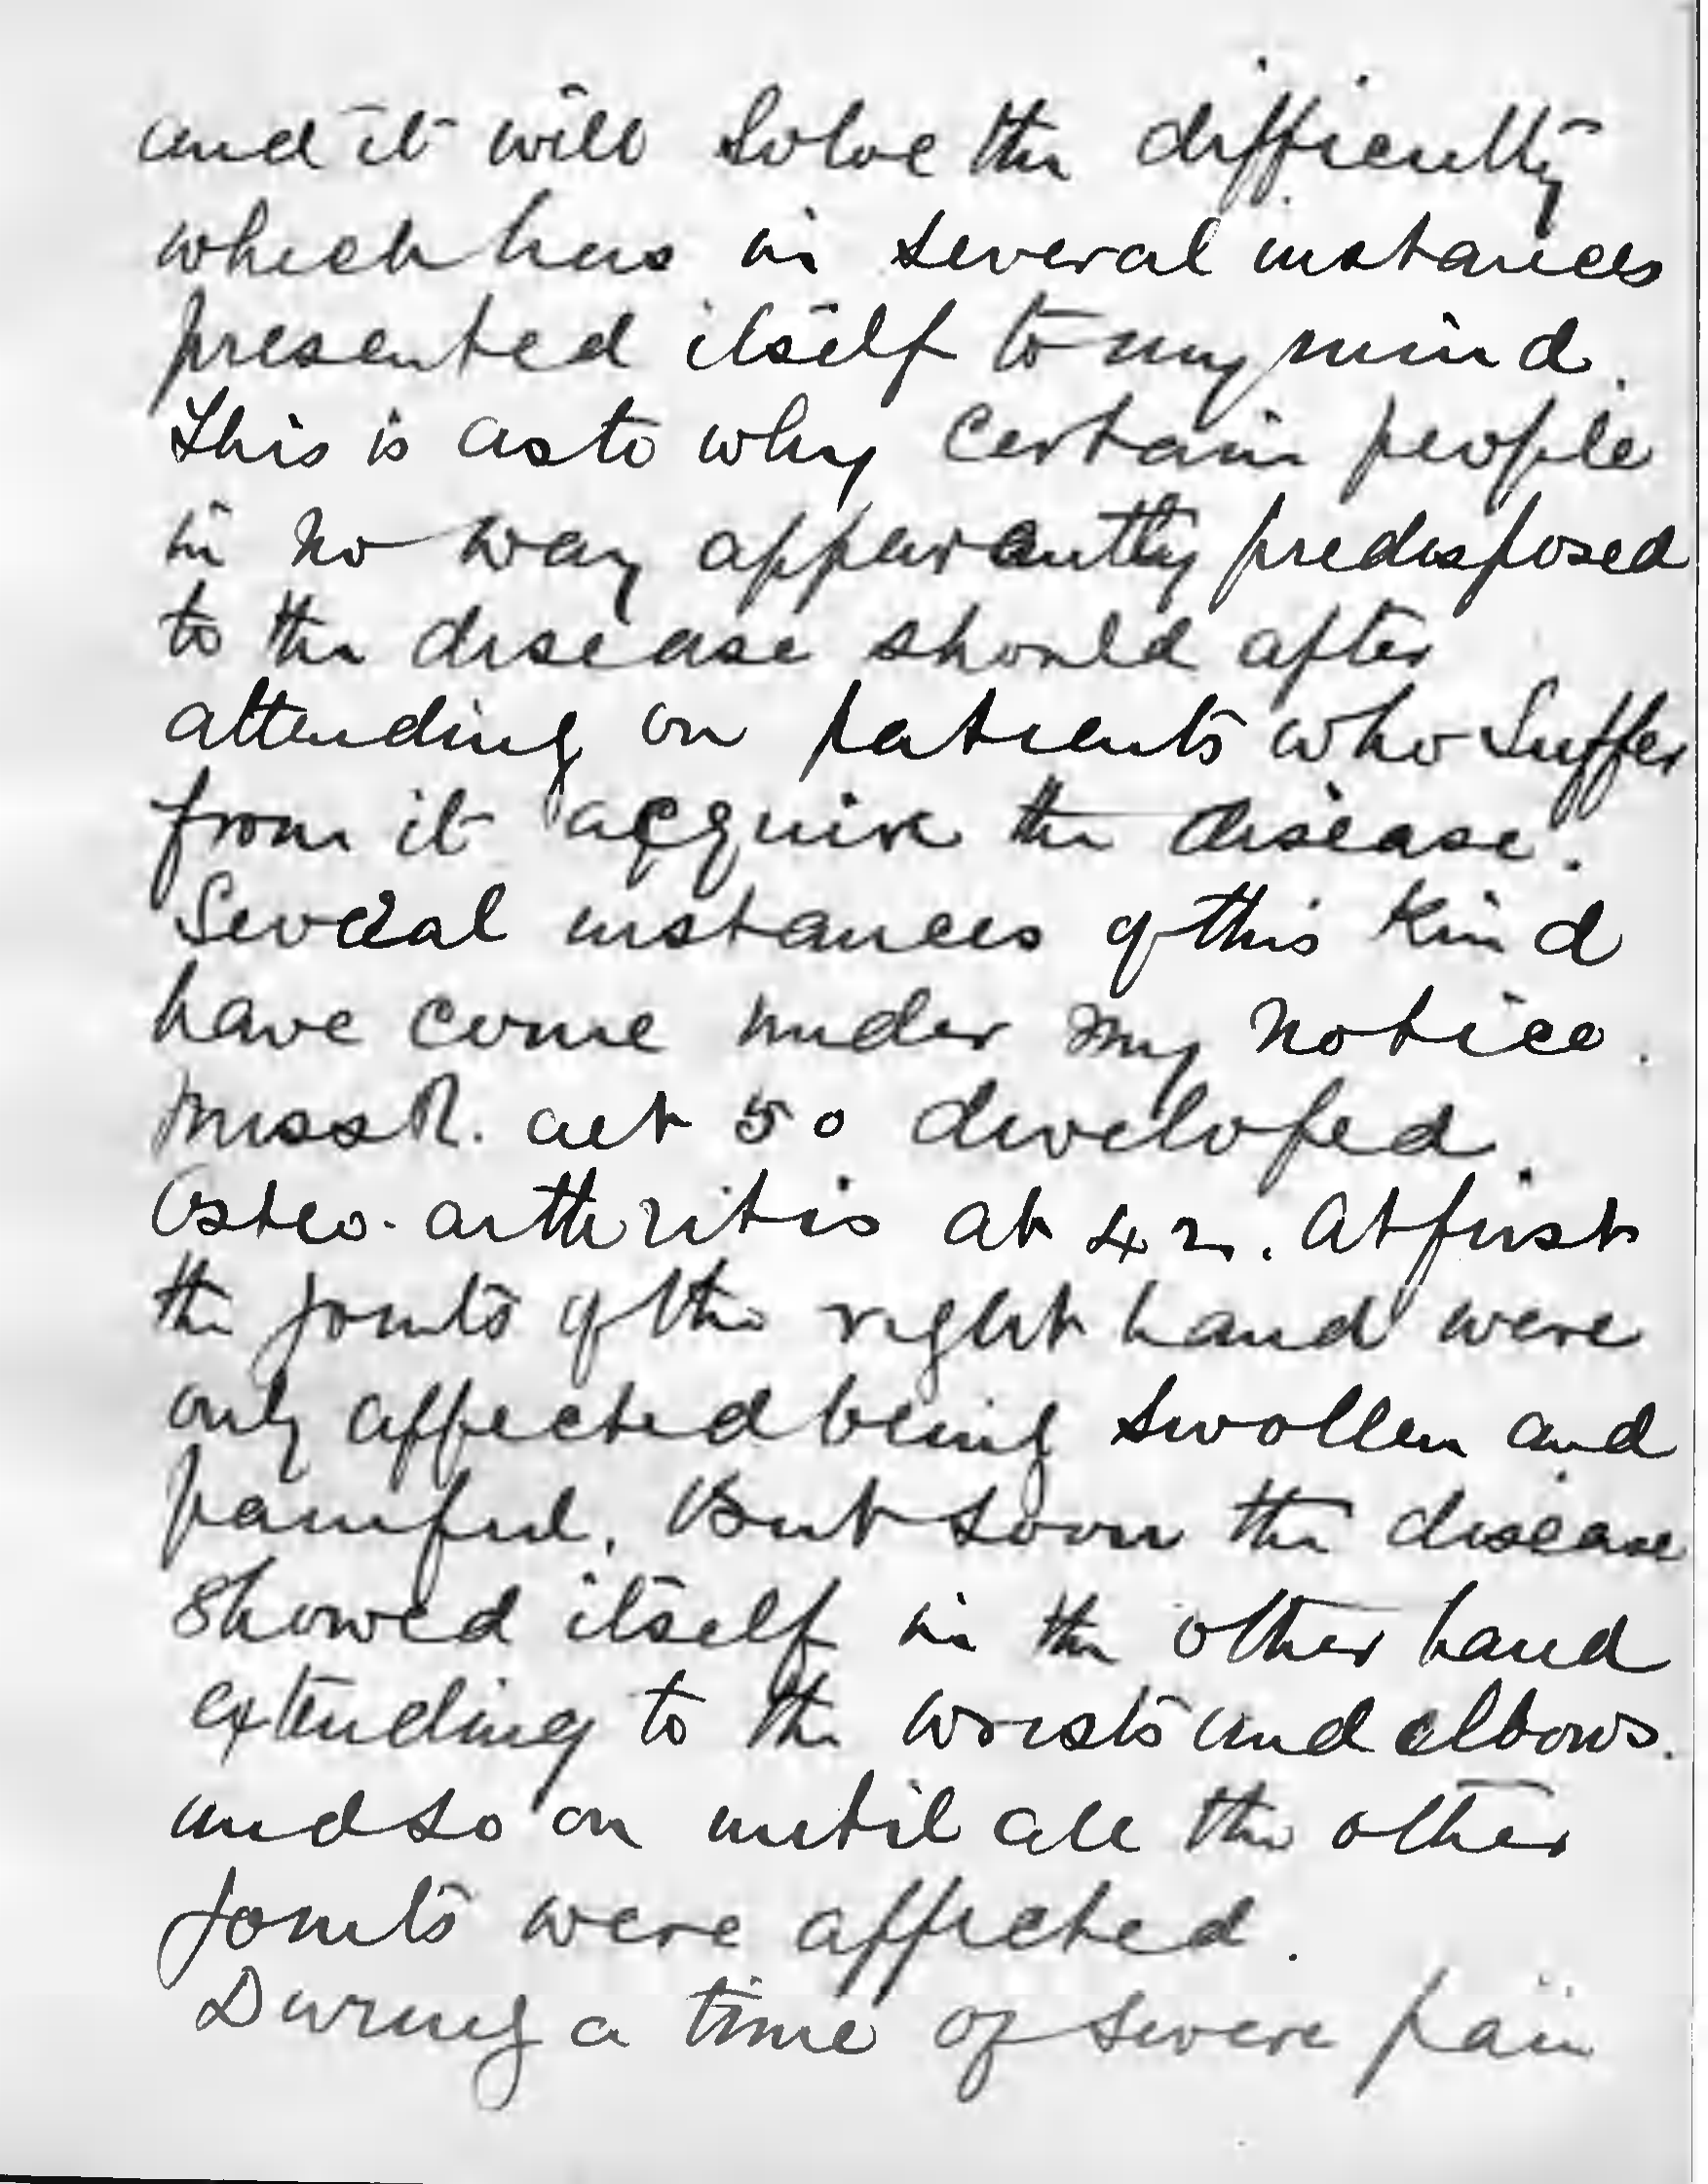 and it will solve the difficulty
which has in several instances
presented itself to my mind.
This is as to why certain people
in no way apparantly predisposed
to the disease should after
attending on patients who suffer
from it acquire the disease.
Several instances of this kind
have come under my notice.
Miss R. aet 50 developed
Osteo-arthritis at 42. At first
the joints of the right hand were
only affected being swollen and
painful. But soon the disease
showed itself in the other hand
extending to the wrists and elbows.
and so on until all the other
joints were affected.
During a time of severe pain